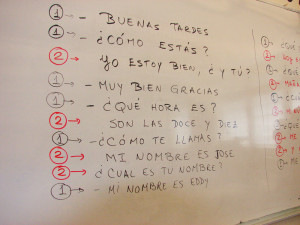 1 → - BUENAS TARDES
1 → - ¿CÓMO ESTÁS?
2 → YO ESTOY BIEN, ¿Y TÚ?
1 → - MUY BIEN GRACIAS
1 → - ¿QUÉ HORA ES?
2 → SON LAS DOCE Y DIEZ
1 → - ¿CÓMO TE LLAMAS?
2 → MI NOMBRE ES JOSE
2 → ¿CUAL ES TU NOMBRE?
1 → - MI NOMBRE ES EDDY